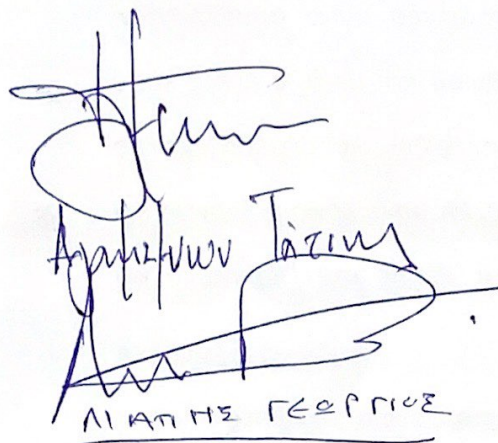 Αγαμέμνων Τάτσης
ΛΙΑΠΗΣ ΓΕΩΡΓΙΟΣ